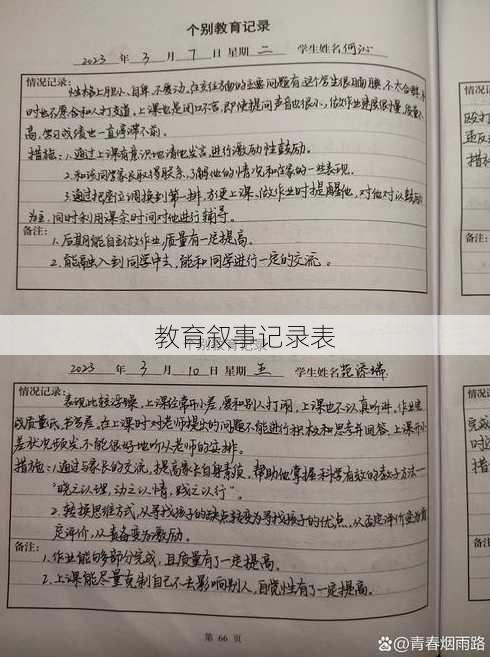 个别教育记录
2023 年 3 月 7 日 星期 二 学生姓名 何沁
情况记录:
性格上胆小、自卑、不爱动,在交往方面的主要问题有:这个学生很腼腆,不大合群,平
时也不愿合和人打交道。上课也是闭口不言,即使提问声音也很小,做作业速度很慢,质量不
高,学习成绩也一直停滞不前。
措施:1.通过上课有意识地请他发言,进行激励性鼓励。
2.和该同学家长取得联系,了解他的情况和在家的一些表现。
3.通过把座位调换到第一排,方便上课、做作业时提醒他,对他对以鼓励
为主,同时利用课余时间对他进行辅导。
备注:
1.后期能自主做作业,质量有一定提高。
2.能融入到同学中去,能和同学进行一定的交流。
教育叙事记录表
个别教育记录
2023 年 3 月 10 日 星期 五 学生姓名
情况记录:
表现比较浮躁,上课经常开小差,爱和别人打闹,上课也不认真听讲,作业完
成质量低,书写差,在上课时对老师提出的问题不能进行积极和思考并回答,上课开小
差状况频发,不能很好地听从老师的安排。
措施:1.通过与家长的交流,提高家长自身素质,帮助他掌握科学有效的教子方法——
“晓之以理,动之以情,践之以行”。
2.转换思维方式,从寻找孩子的缺点转变为寻找孩子的优点,从否定评价变为肯
定评价,从责备变为激励。
备注:
1.作业能够部分完成,且质量有了一定提高。
2.上课能尽量克制自己不去影响别人,自觉性有了一定提高。
第 66 页
措施
完成
措施
@青春烟雨路